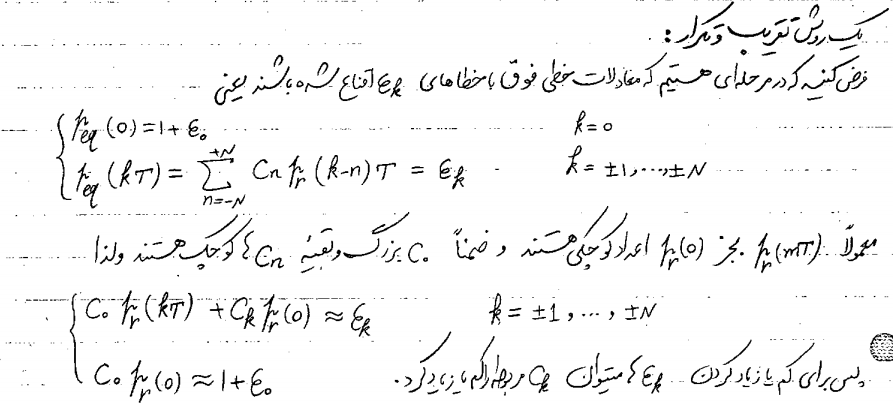 یک روش تقریب و تکرار :
فرض کنید که در مرحله‌ای هستیم که معادلات خطی فوق با خطاهای εk اقناع شده باشند یعنی
p_eq(0) = 1 + ε₀    k = 0
p_eq(kT) = Σ_{n=-N}^{+N} C_n p_r(k-n)T = ε_k    k = ±1, ..., ±N
معمولاً p_r(mT) بجز p_r(0) اعداد کوچکی هستند و ضمناً C₀ بزرگ و بقیه C_n ها کوچک هستند ولذا
C₀ p_r(kT) + C_k p_r(0) ≈ ε_k    k = ±1, ..., ±N
C₀ p_r(0) ≈ 1 + ε₀
پس برای کم یا زیاد کردن ε_k ها میتوان C_k مربوطه را کم یا زیاد کرد.